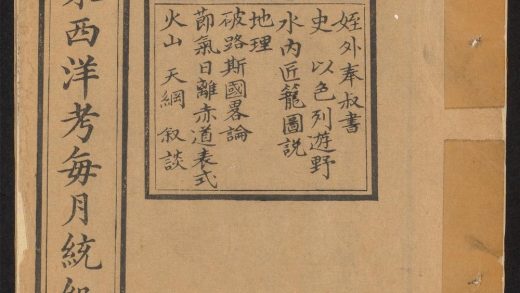 姪外奉叔書
史 以色列遊野
水內匠籠圖説
地理
破路斯國畧論
節氣日離赤道表式
火山 天綱 敘談
西洋考每月統